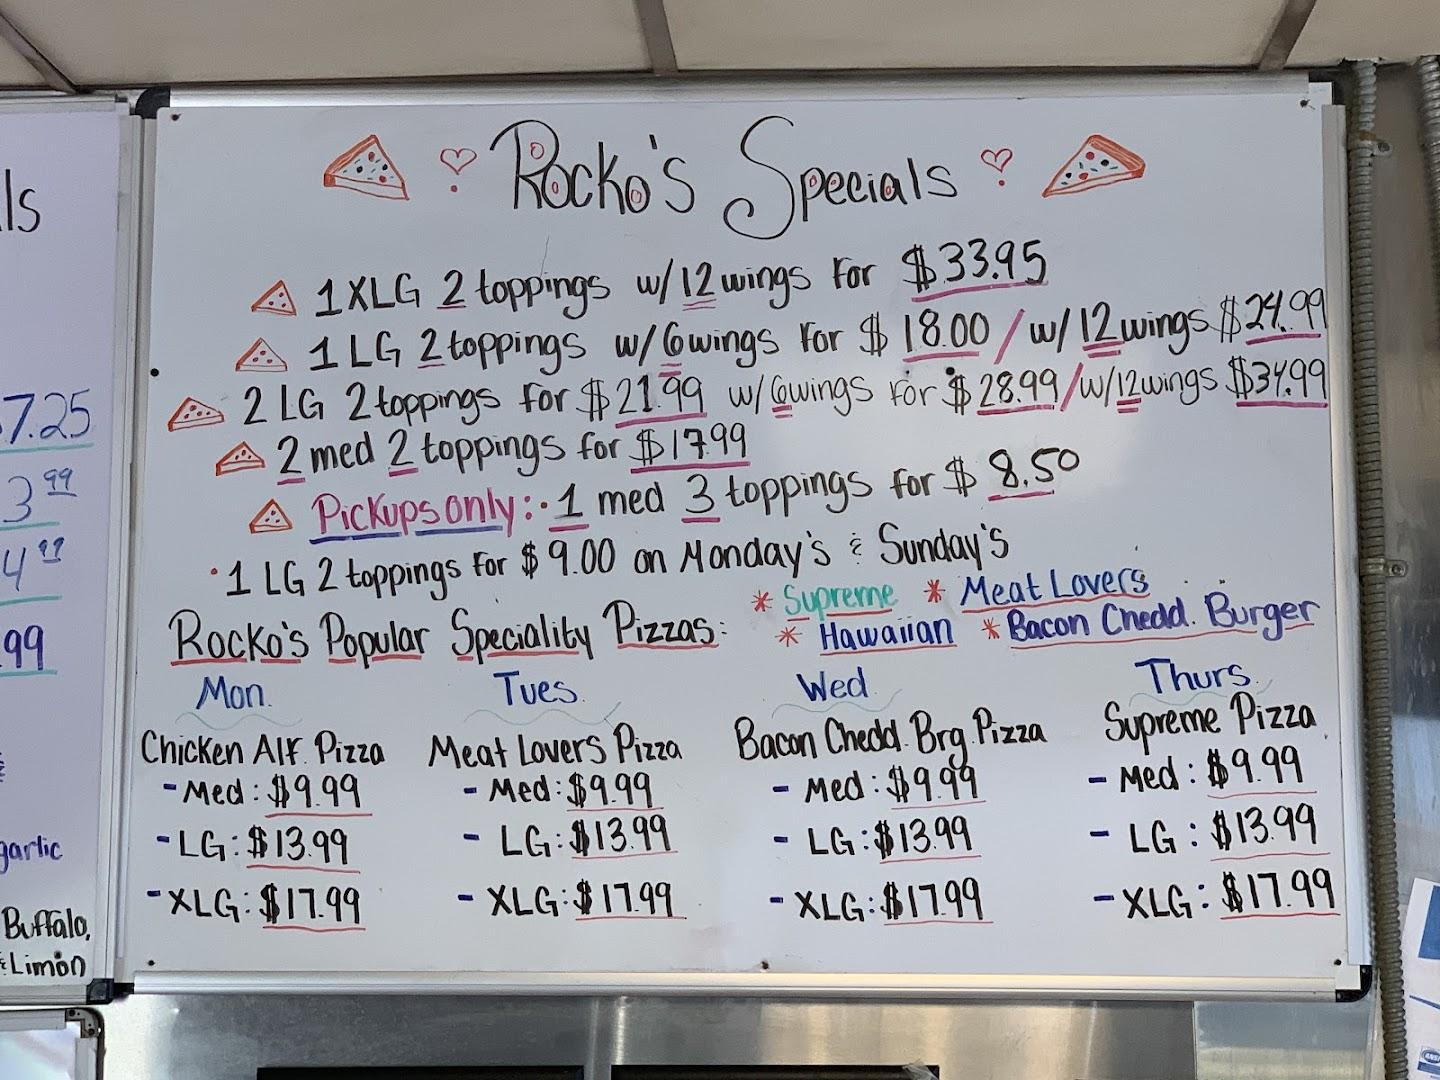 Rocko's Specials
1 XLG 2 toppings w/ 12 wings for $33.95
1 LG 2 toppings w/ 6 wings for $18.00 / w/ 12 wings $24.99
2 LG 2 toppings for $21.99 w/ 6 wings for $28.99 / w/ 12 wings $34.99
2 med 2 toppings for $17.99
Pickups only: · 1 med 3 toppings for $8.50
· 1 LG 2 toppings for $9.00 on Monday's & Sunday's
Rocko's Popular Speciality Pizzas:
* Supreme * Meat Lovers
* Hawaiian * Bacon Chedd. Burger
Mon. Tues. Wed. Thurs.
Chicken Alf. Pizza Meat Lovers Pizza Bacon Chedd. Brg. Pizza Supreme Pizza
- Med: $9.99 - Med: $9.99 - Med: $9.99 - Med: $9.99
- LG: $13.99 - LG: $13.99 - LG: $13.99 - LG: $13.99
- XLG: $17.99 - XLG: $17.99 - XLG: $17.99 - XLG: $17.99
ls
7.25
3.99
4.99
.99
garlic
Buffalo,
& Limón